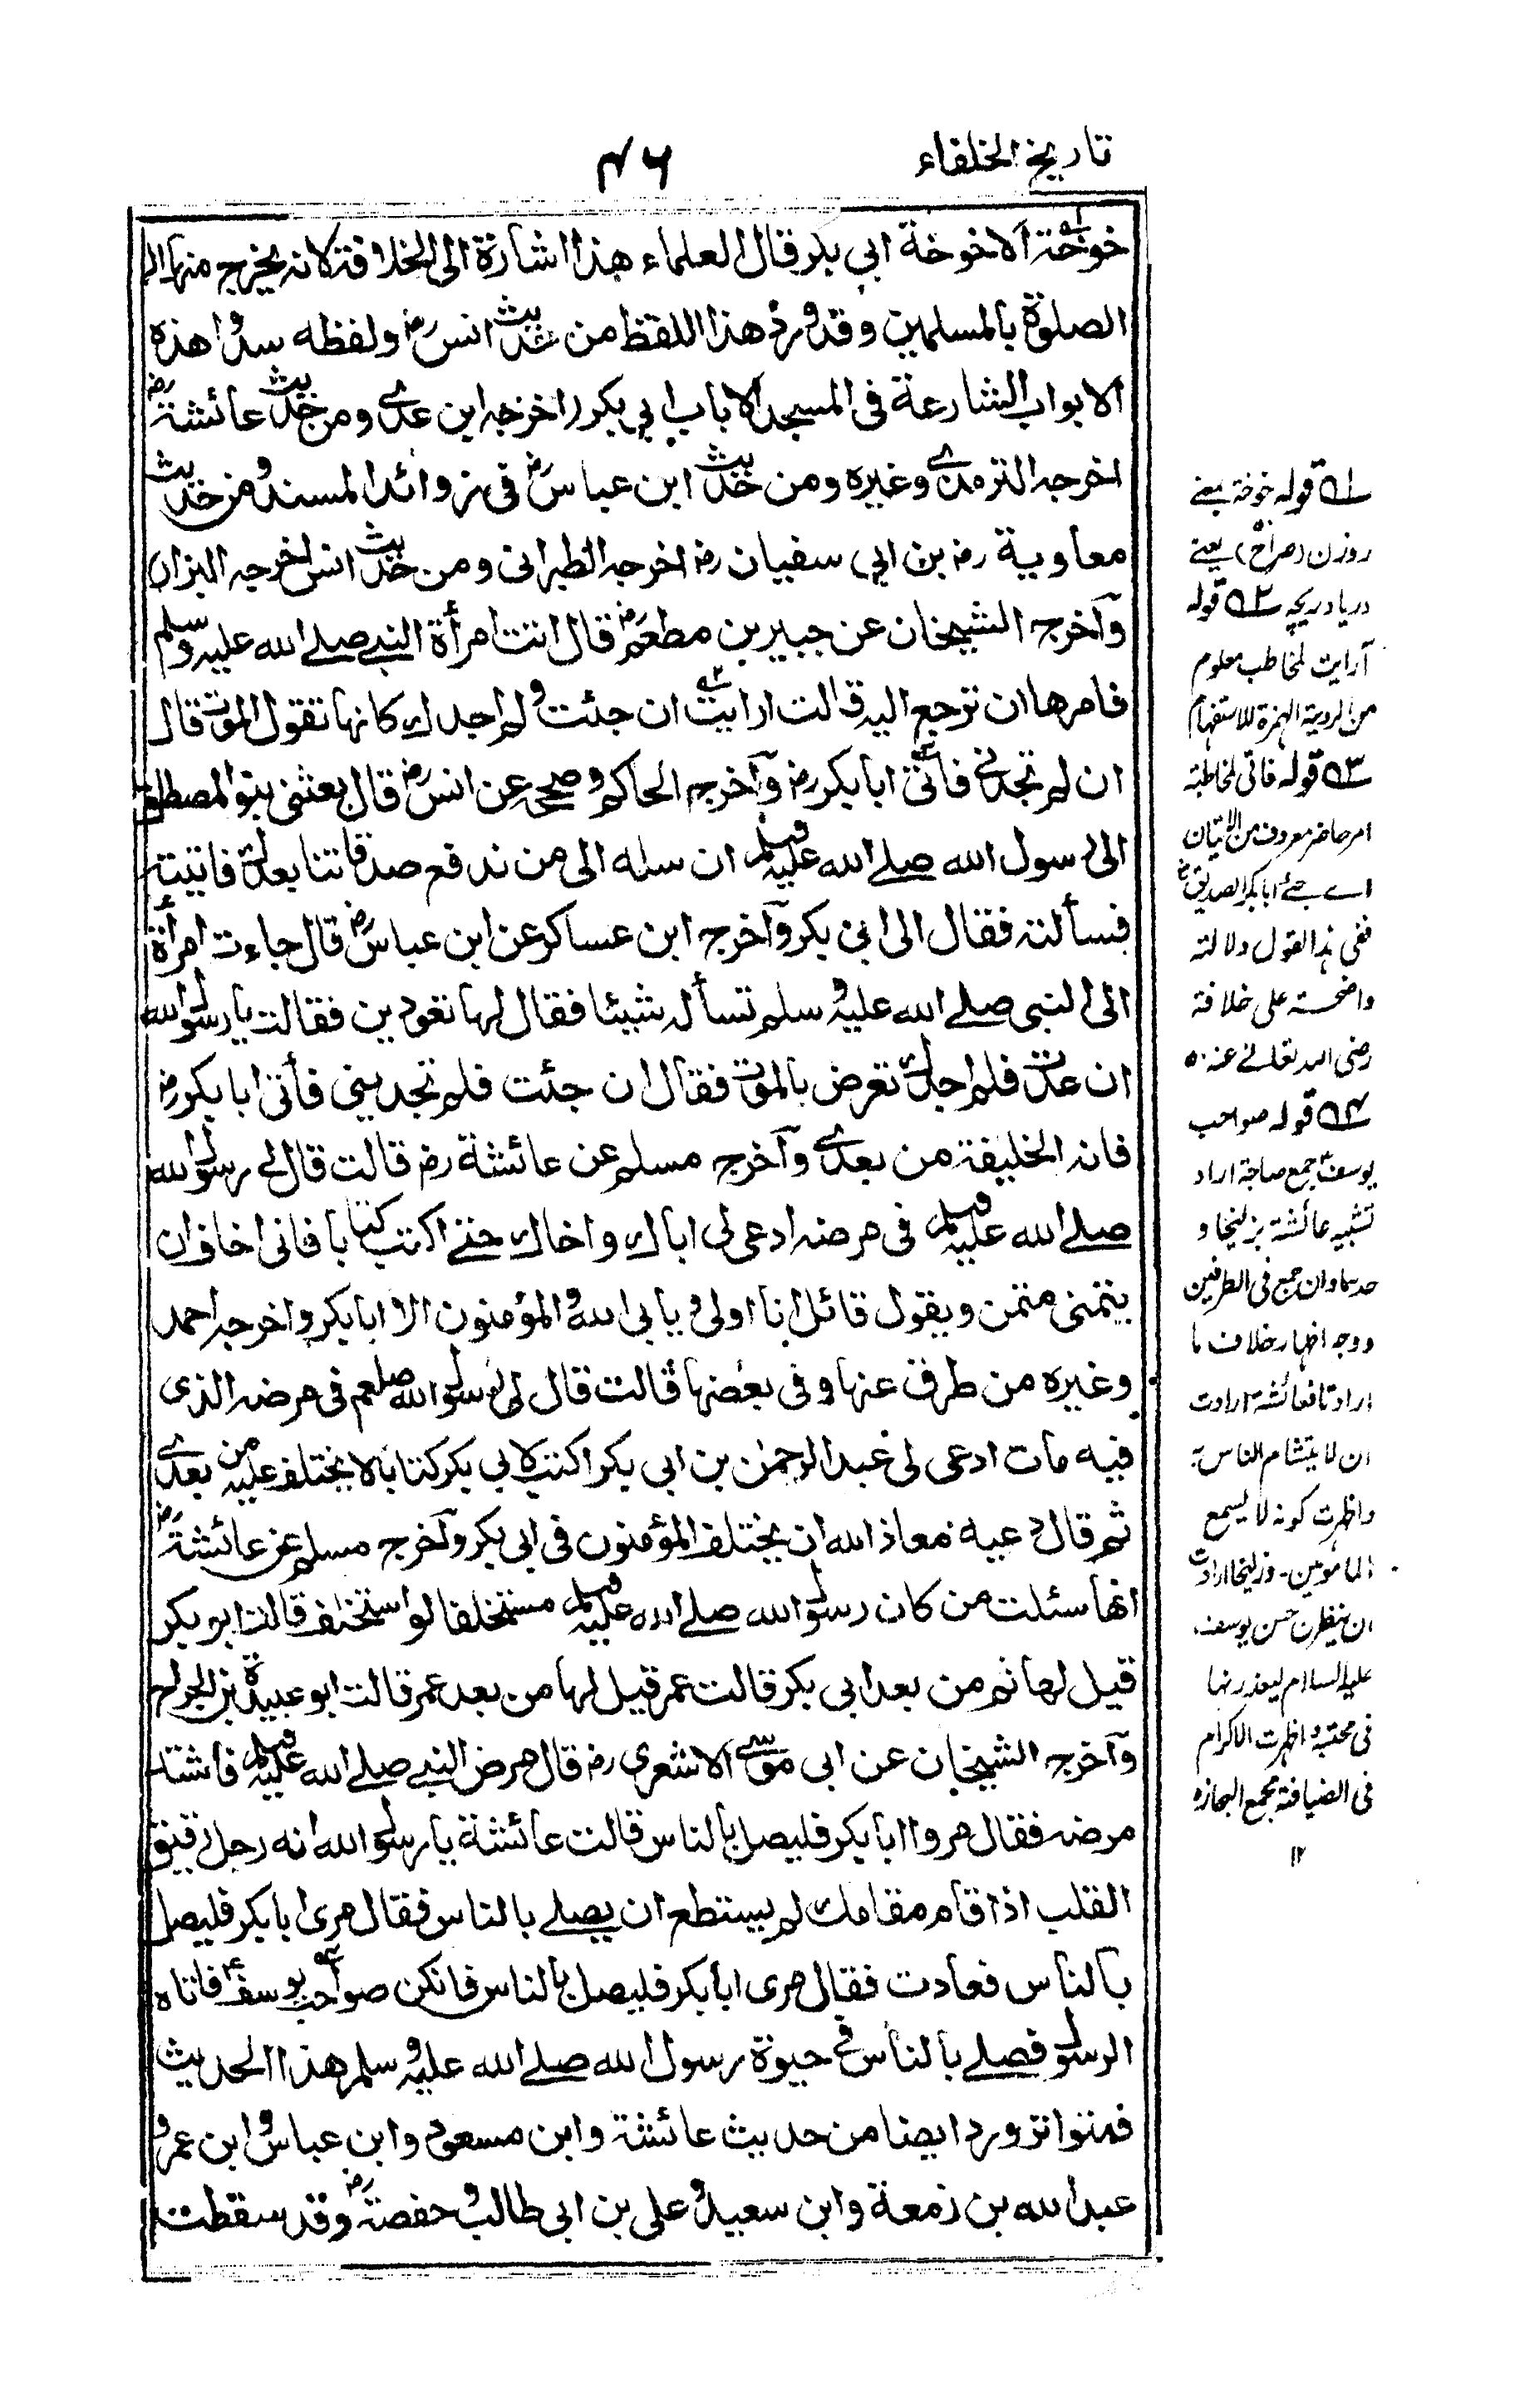 تاريخ الخلفاء
۴۶
خوخة الا خوخة ابي بكر قال العلماء هذا اشارة الى الخلافة لانه يخرج منها الى
الصلوة بالمسلمين وقد ورد هذا اللفظ من حديث انس رض ولفظه سدوا هذه
الابواب الشارعة فى المسجد الا باب ابي بكر اخرجه ابن عدى ومن حديث عائشة رض
اخرجه الترمذى وغيره ومن حديث ابن عباس رض فى زوائد المسند ومن حديث
معاوية رض بن ابي سفيان رض اخرجه الطبرانى ومن حديث انس اخرجه البزار
وآخرج الشيخان عن جبير بن مطعم رض قال اتت امرأة النبى صلے الله عليه وسلم
فامرها ان ترجع اليه قالت ارايت ان جئت ولم اجدك كانها تقول الموت قال
ان لم تجدنى فأتى ابا بكر رض وآخرج الحاكم وصححه عن انس رض قال بعثنى بنو المصطلق
الى رسول الله صلے الله عليه وسلم ان سله الى من ندفع صدقاتنا بعدك فاتيته
فسألته فقال الى ابى بكر وآخرج ابن عساكر عن ابن عباس رض قال جاءت امرأة
الى النبى صلے الله عليه وسلم تسأله شيئا فقال لها تعودين فقالت يا رسول الله
ان عدت فلم اجدك تعرض بالموت فقال ان جئت فلم تجدينى فأتى ابا بكر رض
فانه الخليفة من بعدى وآخرج مسلم عن عائشة رض قالت قال لى رسول الله
صلے الله عليه وسلم فى مرضه ادعى لى اباك واخاك حتے اكتب كتابا فانى اخاف ان
يتمنى متمن ويقول قائل انا اولى ويابى الله والمؤمنون الا ابا بكر واخرجه احمد
وغيره من طرق عنها وفى بعضها قالت قال لى رسول الله صلعم فى مرضه الذى
فيه مات ادعى لى عبد الرحمٰن بن ابى بكر اكتب لابى بكر كتابا لا يختلف عليه من بعدى
ثم قال دعيه معاذ الله ان يختلف المؤمنون فى ابى بكر وآخرج مسلم عن عائشة رض
انها سئلت من كان رسول الله صلے الله عليه وسلم مستخلفا لو استخلف قالت ابو بكر
قيل لها ثم من بعد ابى بكر قالت عمر قيل لها من بعد عمر قالت ابو عبيدة بن الجراح
وآخرج الشيخان عن ابى موسى الاشعرى رض قال مرض النبى صلے الله عليه وسلم فاشتد
مرضه فقال مروا ابا بكر فليصل بالناس قالت عائشة يا رسول الله انه رجل رقيق
القلب اذا قام مقامك لم يستطع ان يصلے بالناس فقال مرى ابا بكر فليصل
بالناس فعادت فقال مرى ابا بكر فليصل بالناس فانكن صواحب يوسف فاتاه
الرسول فصلے بالناس فى حيوة رسول الله صلے الله عليه وسلم هذا الحديث
متواتر ورد ايضا من حديث عائشة وابن مسعود وابن عباس وابن عمر و
عبد الله بن زمعة وابن سعيد وعلى بن ابى طالب وحفصة رض وقد سقطت
۱ قوله خوخة بمعنے
روزن (صراح) يعنے
در يا دريچه ۲ قوله
أرايت لمخاطب معلوم
من الروية الهمزة للاستفهام
۳ قوله فاتى لمخاطبة
امر حاضر معروف من الاتيان
اے جئى ابا بكر الصديق رض
ففى هذا القول دلالة
واضحة على خلافة
رضى الله تعالے عنه
۴ قوله صواحب
يوسف جمع صاحبة اراد
تشبيه عائشة بزليخا و
حدها وان جمع فى الطرفين
ووجه اظهار خلاف ما
ارادتا فعائشة ارادت
ان لا يتشاءم الناس به
واظهرت كونه لا يسمع
المامومين - وزليخا ارادت
ان ينظرن حسن يوسف
عليه السلام ليعذرنها
فى محبته واظهرت الاكرام
فى الضيافة مجمع البحار
۱۲